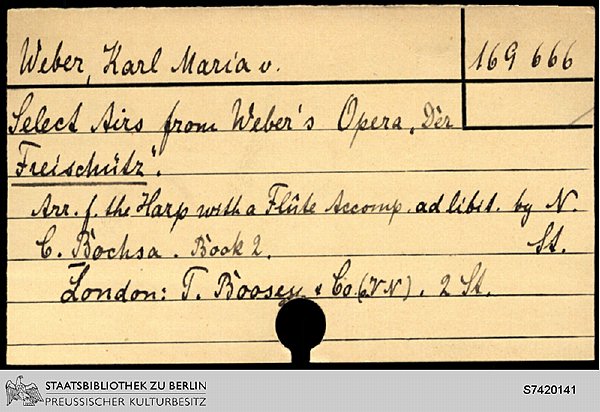 Weber, Karl Maria v.
169 666
Select Airs from Weber's Opera „Der
Freischütz".
Arr. f. the Harp with a Flûte Accomp. ad libit. by N.
C. Bochsa. Book 2. St.
London: T. Boosey & Co. (VN). 2 St.
STAATSBIBLIOTHEK ZU BERLIN
PREUSSISCHER KULTURBESITZ
S7420141